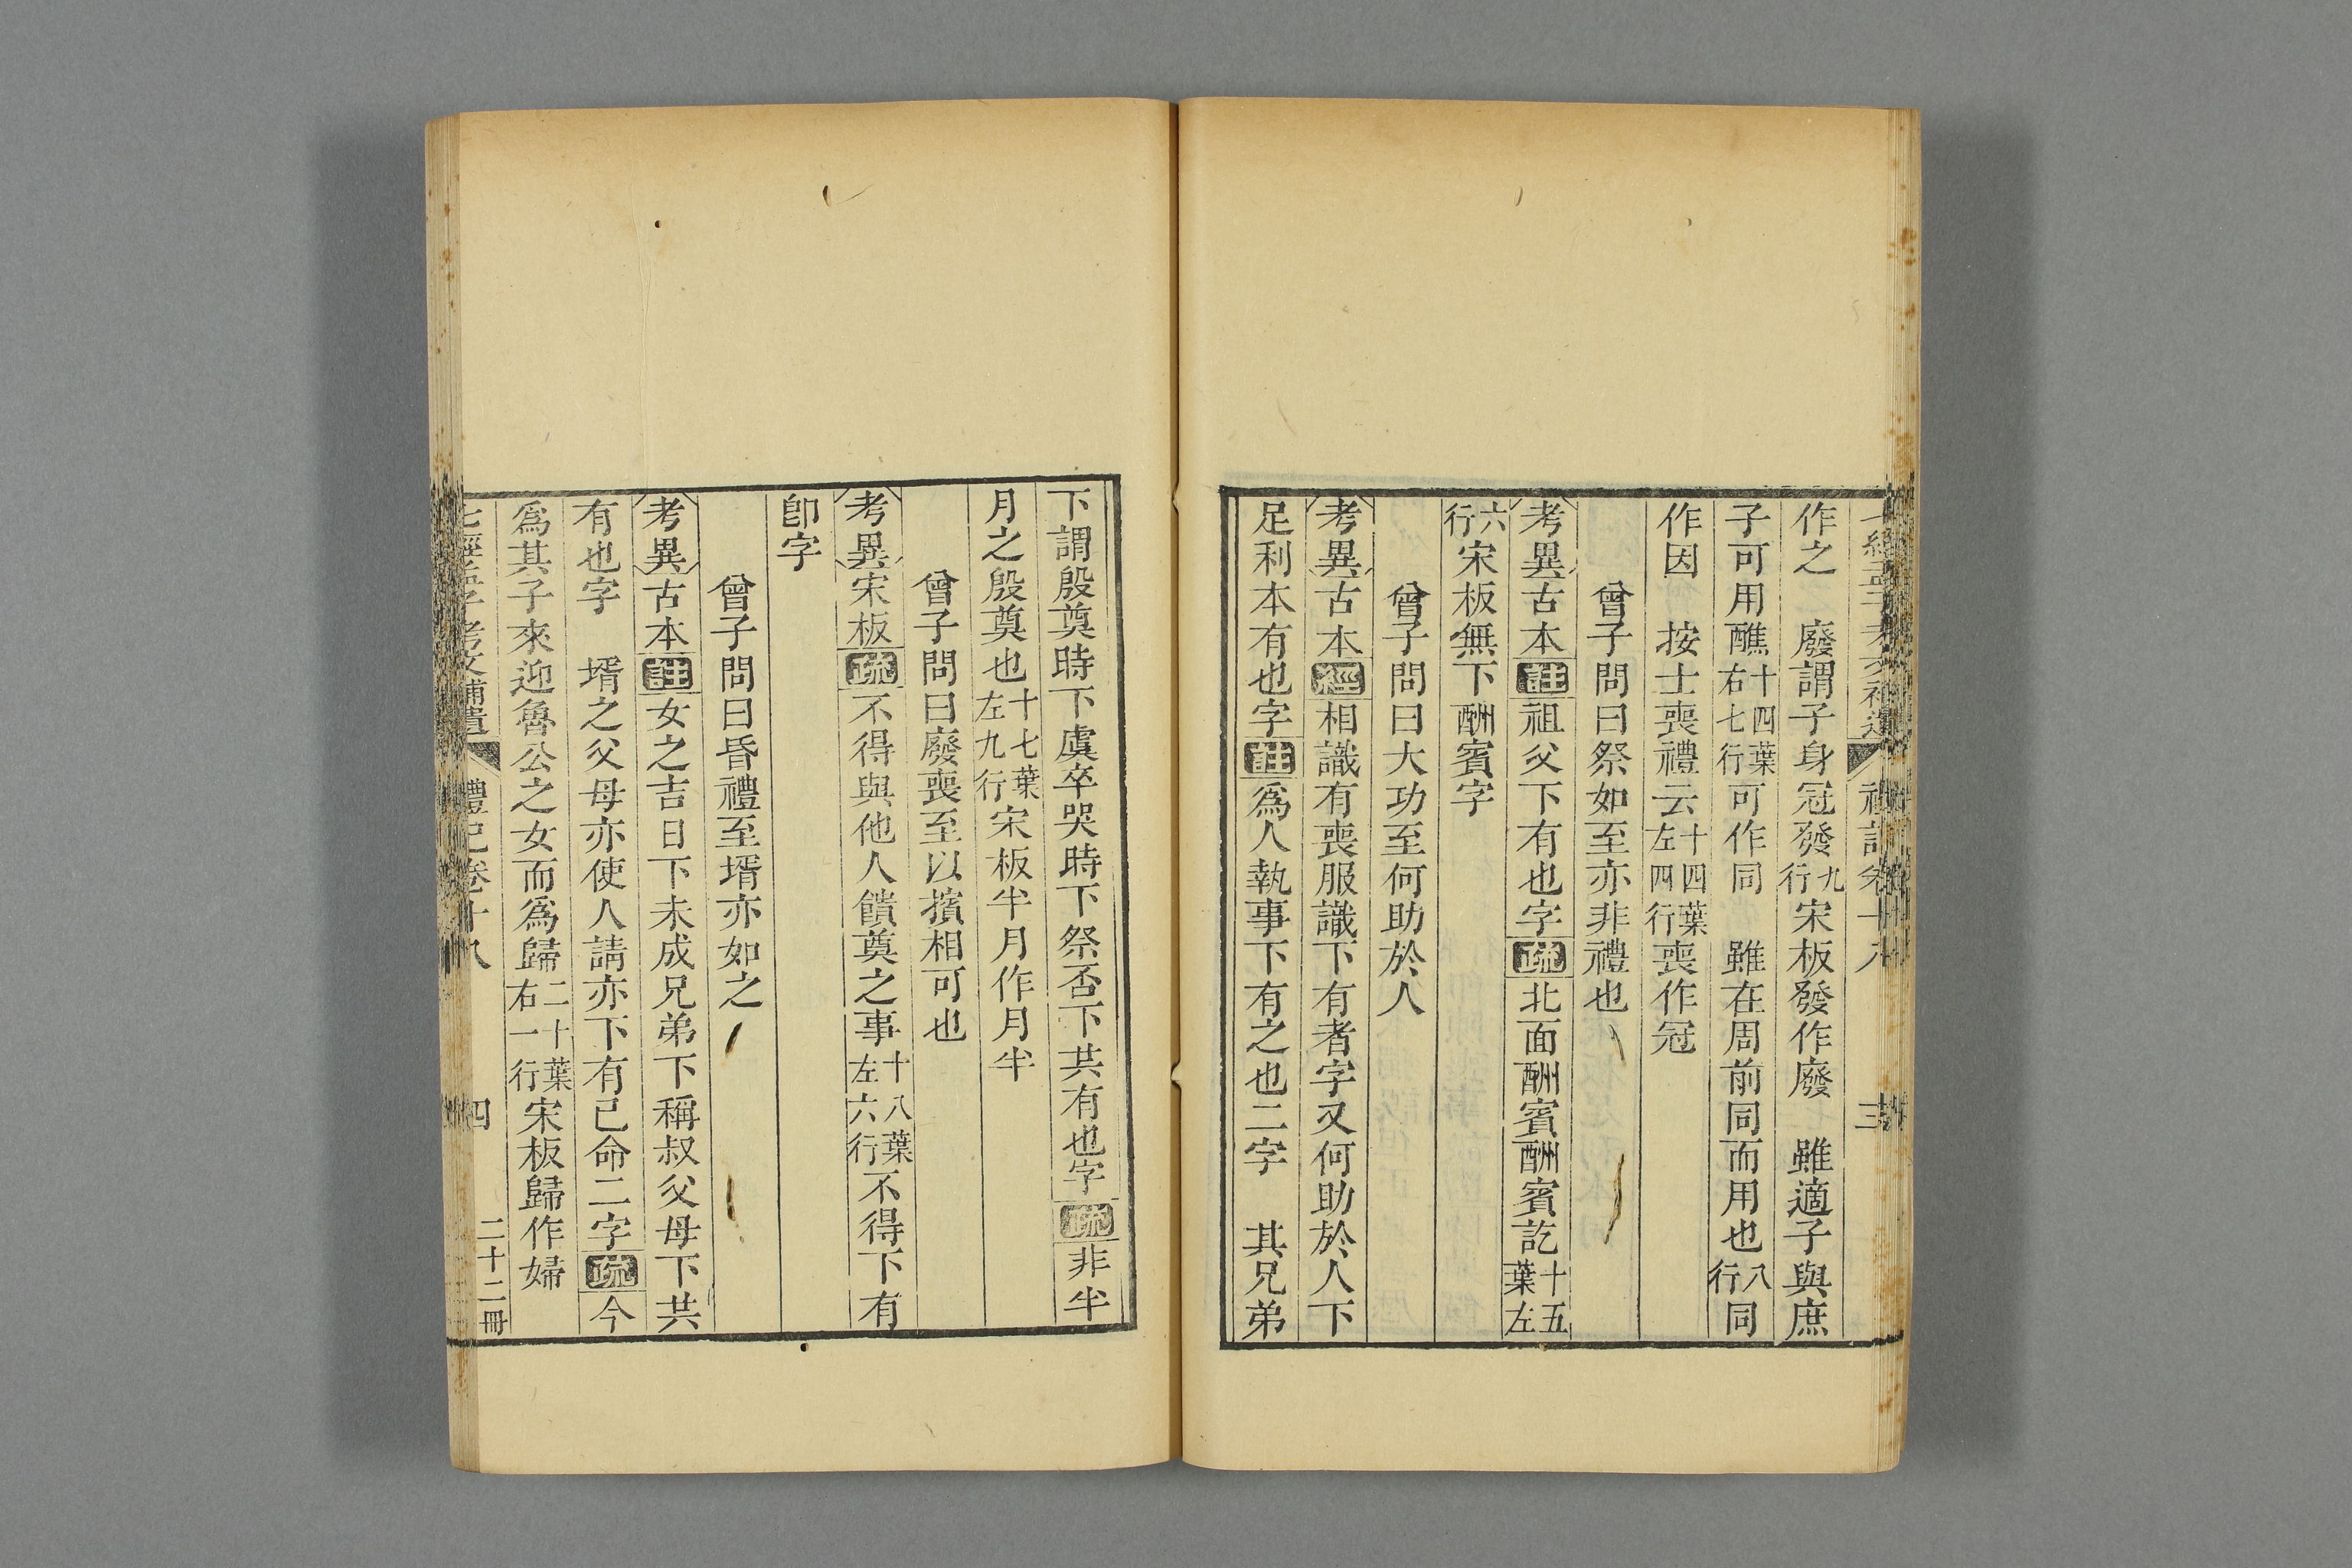 七經孟子考文補遺 禮記卷十八 三
作之 廢謂子身冠發九行宋板發作廢 雖適子與庶
子可用醮十四葉右七行可作同 雖在周前同而用也八行同
作因 按士喪禮云十四葉左四行喪作冠
曾子問曰祭如至亦非禮也
考異古本註祖父下有也字疏北面酬賓酬賓訖十五葉左
六行宋板無下酬賓字
曾子問曰大功至何助於人
考異古本經相識有喪服識下有者字又何助於人下
足利本有也字註爲人執事下有之也二字 其兄弟
下謂殷奠時下虞卒哭時下祭否下共有也字疏非半
月之殷奠也十七葉左九行宋板半月作月半
曾子問曰廢喪至以擯相可也
考異宋板疏不得與他人饋奠之事十八葉左六行不得下有
卽字
曾子問曰昏禮至壻亦如之
考異古本註女之吉日下未成兄弟下稱叔父母下共
有也字 壻之父母亦使人請亦下有己命二字疏今
爲其子來迎魯公之女而爲歸二十葉右一行宋板歸作婦
七經孟子考文補遺 禮記卷十八 四 二十二冊